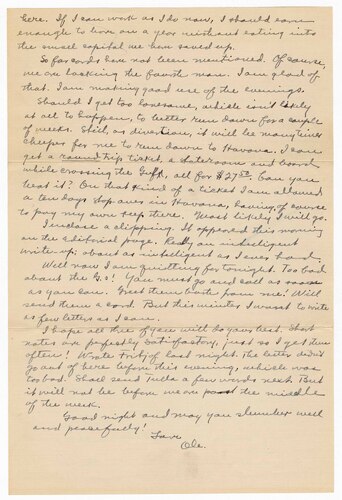 here. If I can work as I do now, I should earn
enough to live on a year without eating into
the small capital we have saved up.
So far cards have not been mentioned. Of course,
we are lacking the fourth man. I am glad of
that. I am making good use of the evenings.
Should I get too lonesome, which isn't likely
at all to happen, to better run down for a couple
of weeks. Still, as diversion, it will be many times
cheaper for me to run down to Havana. I can
get a round trip ticket, a stateroom and board
while crossing the Gulf, all for $27.50 Can you
beat it? On that kind of a ticket I am allowed
a ten days stop over in Havana, having, of course
to pay my own keep there. Most likely I will go.
I inclose a clipping. It appeared this morning
on the editorial page. Really an intelligent
write-up; about as intelligent as I ever had.
Well now I am quitting for tonight. Too bad
about the G's! You must go and call as soon
as you can. Greet them both from me! Will
send them a card. But this minute, I want to write
as few letters as I can.
I hope all three of you will do your best. Short
notes are perfectly satisfactory, just so I get them
often! Wrote last night. The letter didn't
go out of here before this evening, which was
too bad. Shall send a few words next. But
it will not be before we are past the middle
of the week.
Good night and may you slumber well
and peacefully!
Love
Ole.